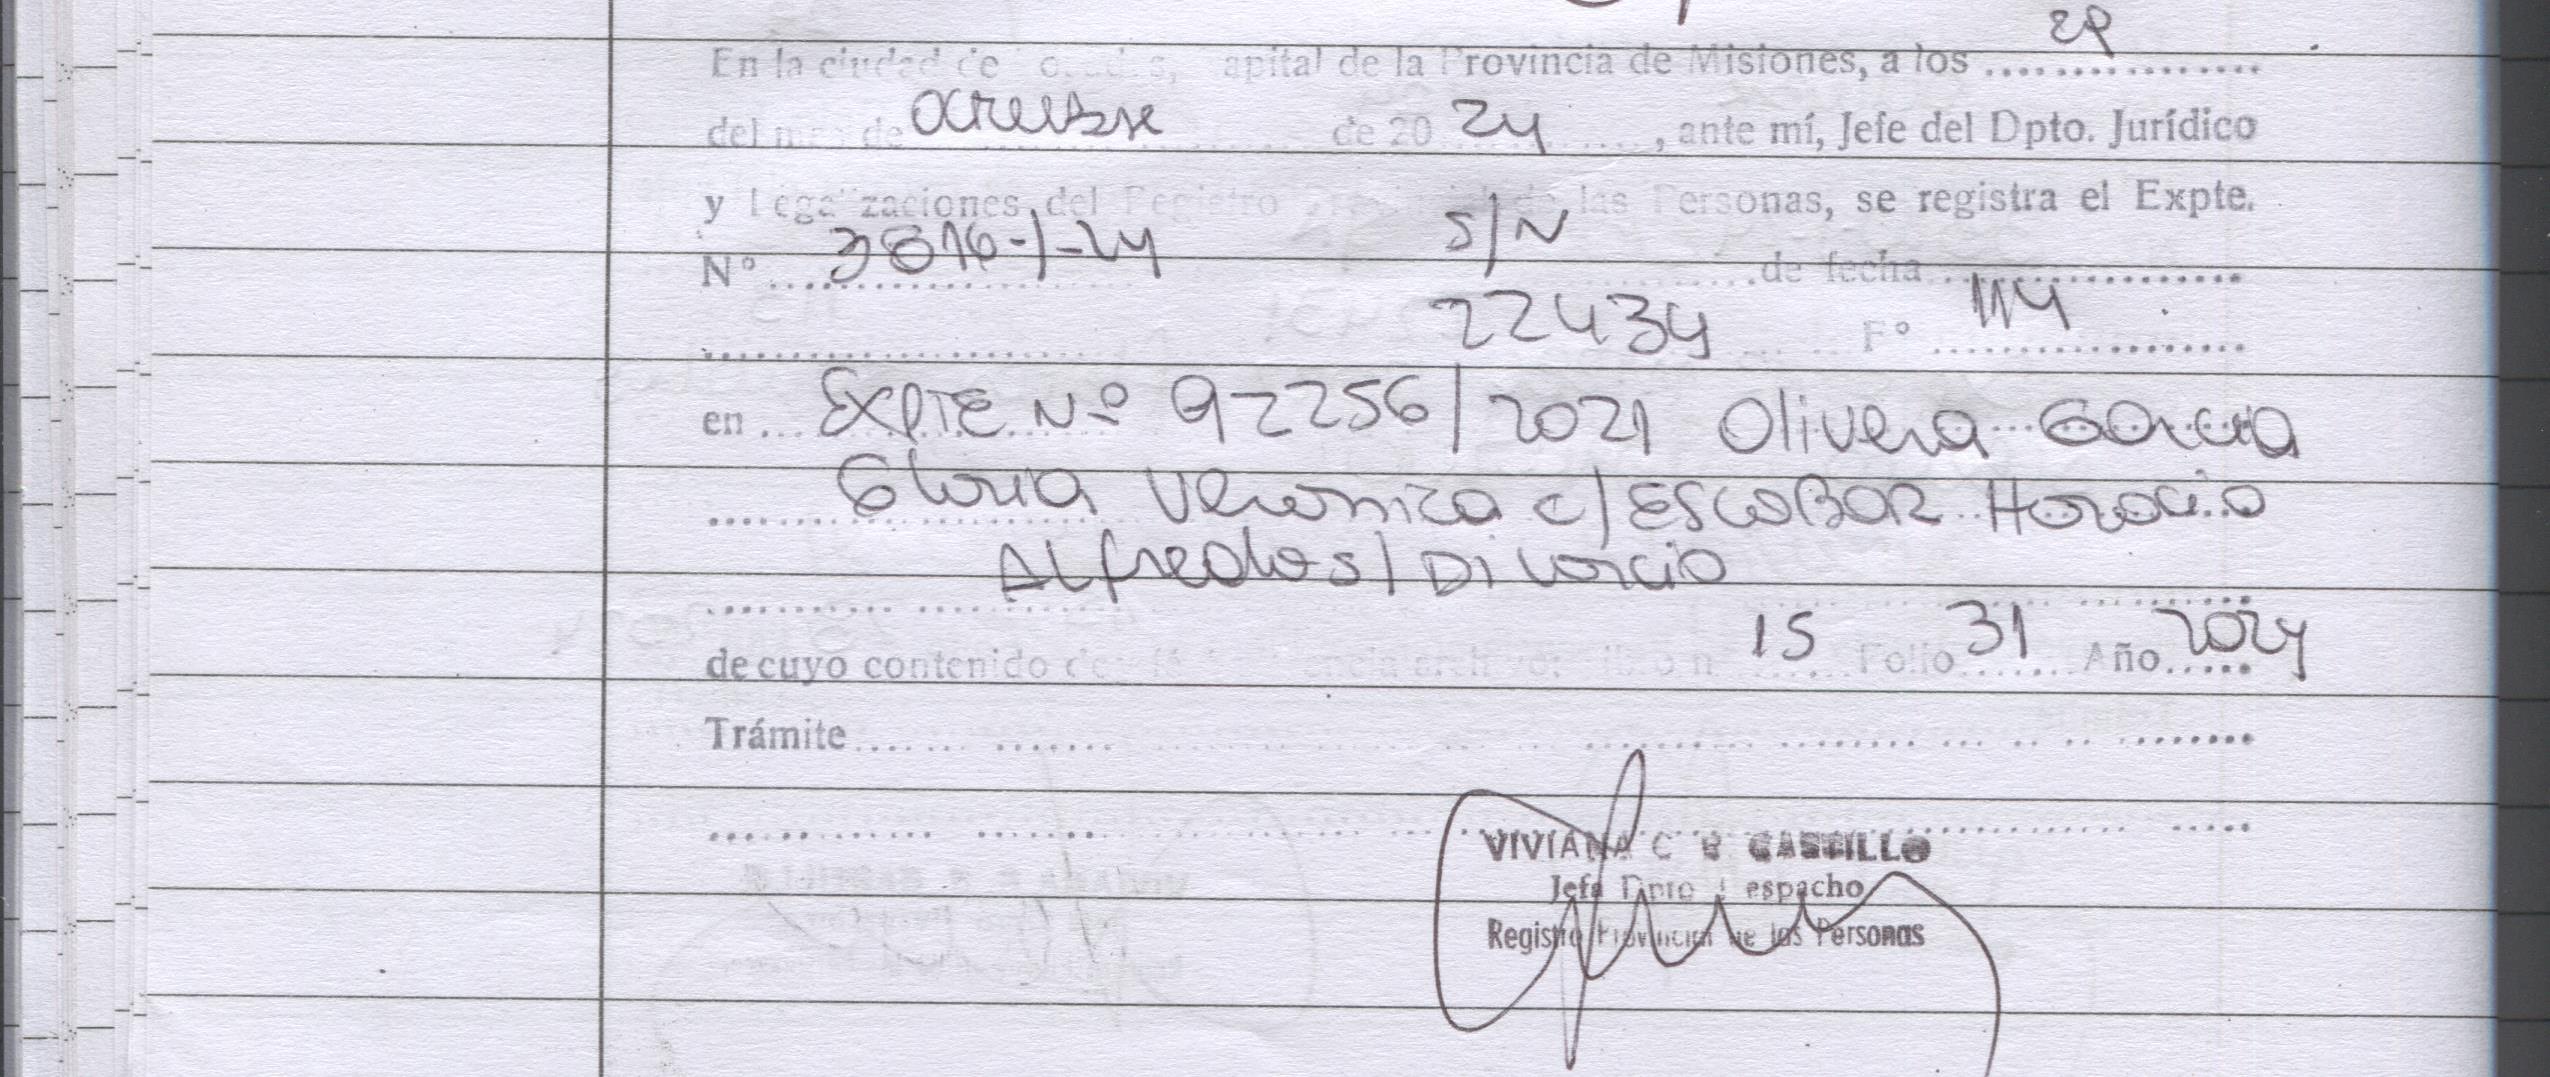 En la ciudad de Posadas, Capital de la Provincia de Misiones, a los
del mes de octubre de 20 24, ante mí, Jefe del Dpto. Jurídico
y Legalizaciones del Registro Provincial de las Personas, se registra el Expte.
Nº 3816-J-24 S/N de fecha
22434 Fº 114
en EXPTE Nº 92256/2021 Olivera Garcia
Gloria Veronica c/ ESCOBAR Horacio
Alfredo s/ Divorcio
de cuyo contenido 15 Folio 31 Año 2024
Trámite
VIVIANA C B CASTILLO
Jefa Dpto Despacho
Registro Provincial de las Personas